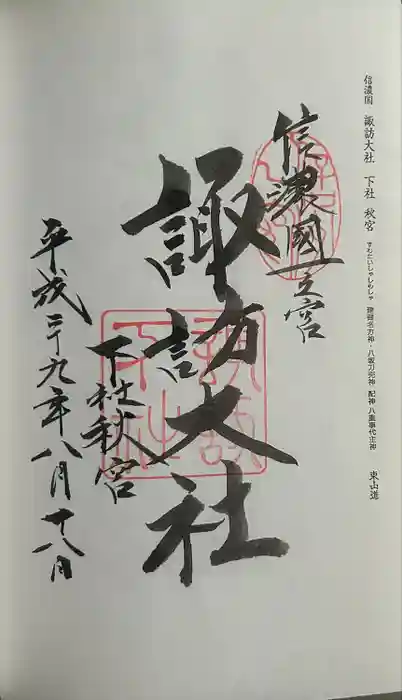 信濃国 諏訪大社 下社 秋宮 すわたいしゃしもしゃ 建御名方神・八坂刀売神・配神 八重事代主神 東山道
信濃國一之宮
諏訪大社
下社秋宮
平成二十九年八月十八日